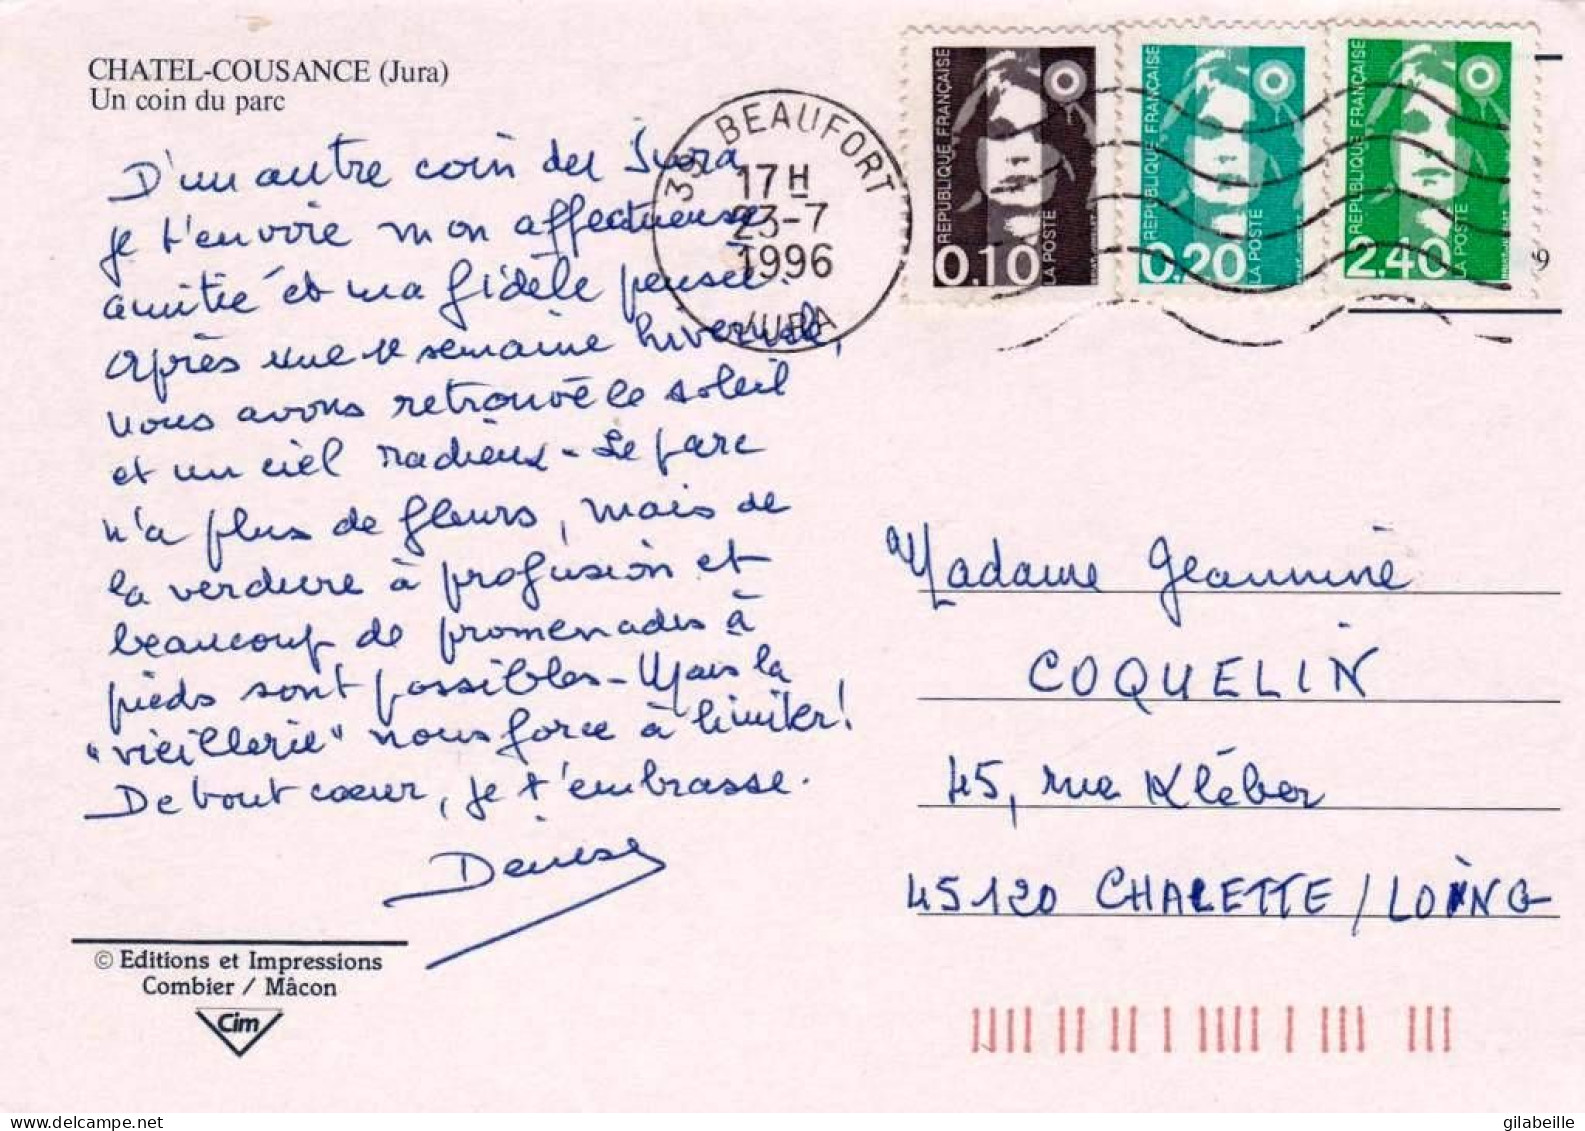 CHATEL-COUSANCE (Jura)
Un coin du parc
D'un autre coin du Jura
je t'envoie mon affectueuse
amitié et ma fidèle pensée.
Après une 1e semaine hivernale,
nous avons retrouvé le soleil
et un ciel radieux - Le parc
n'a plus de fleurs, mais de
la verdure à profusion et
beaucoup de promenades à
pieds sont possibles - Mais la
"vieillerie" nous force à limiter!
De tout coeur, je t'embrasse.
Denise
© Editions et Impressions
Combier / Mâcon
Cim
39 BEAUFORT
17H
23-7
1996
JURA
REPUBLIQUE FRANÇAISE
0.10
LA POSTE
REPUBLIQUE FRANÇAISE
0.20
LA POSTE
REPUBLIQUE FRANÇAISE
2.40
LA POSTE
9
Madame Jeannine
COQUELIN
45, rue Kléber
45120 CHALETTE / LOING
delcampe.net
gilabeille